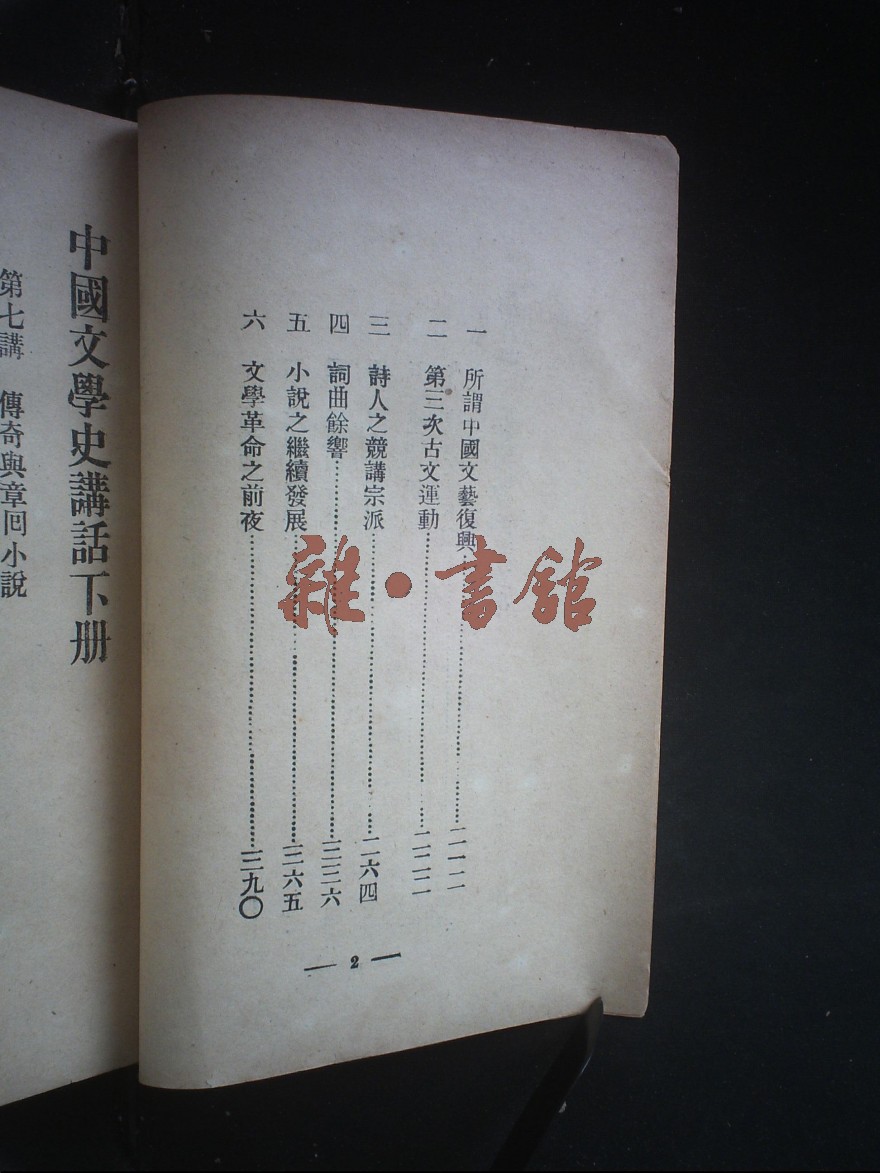 一 所謂中國文藝復興……二一二
二 第三次古文運動……二二二
三 詩人之競講宗派……二六四
四 詞曲餘響……三三六
五 小說之繼續發展……三六五
六 文學革命之前夜……三九〇
— 2 —
中國文學史講話下册
第七講 傳奇與章囘小說
雜·書館